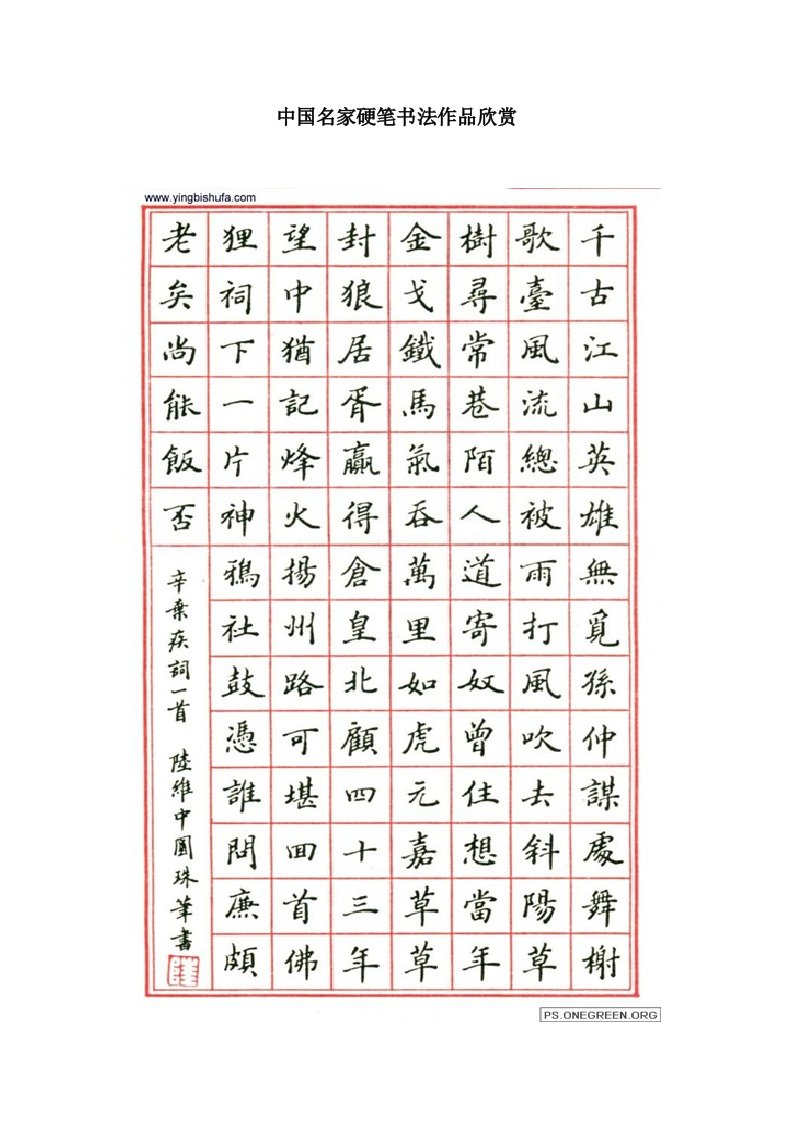 中国名家硬笔书法作品欣赏
www.yingbishufa.com
千古江山英雄無覓孫仲謀處舞榭
歌臺風流總被雨打風吹去斜陽草
樹尋常巷陌人道寄奴曾住想當年
金戈鐵馬氣吞萬里如虎元嘉草草
封狼居胥贏得倉皇北顧四十三年
望中猶記烽火揚州路可堪回首佛
狸祠下一片神鴉社鼓憑誰問廉頗
老矣尚能飯否
辛棄疾詞一首 陸維中圓珠筆書
PS.ONEGREEN.ORG